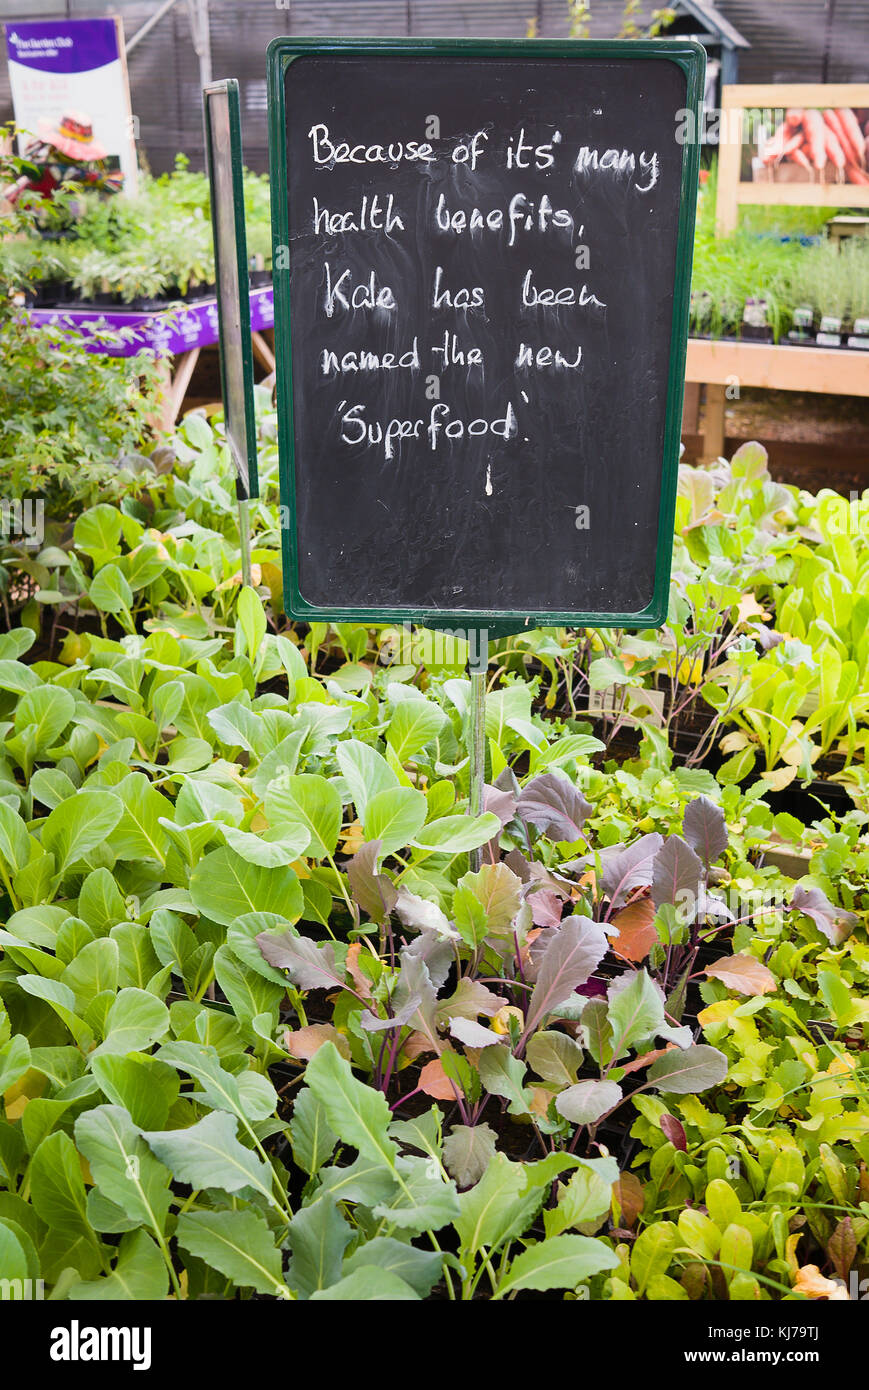 The Garden Club
Because of its' many
health benefits,
Kale has been
named the new
'Superfood'.
a
a
a
a
a
a
a
alamy
Image ID: KJ79TJ
www.alamy.com